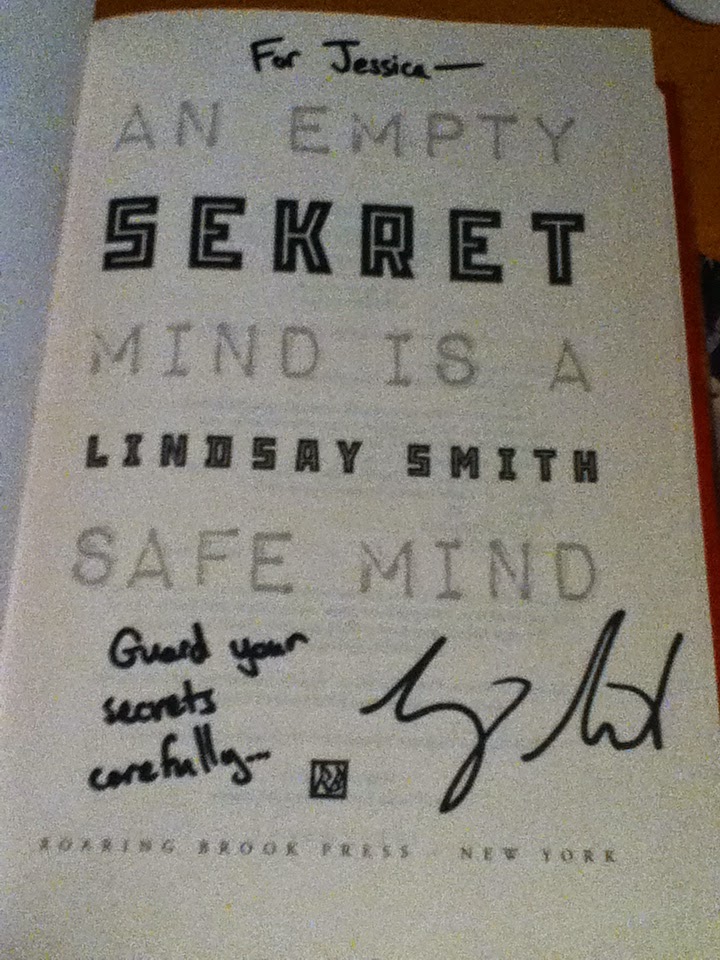 For Jessica—
AN EMPTY
SEKRET
MIND IS A
LINDSAY SMITH
SAFE MIND
Guard your
secrets
carefully...
RB
ROARING BROOK PRESS · NEW YORK